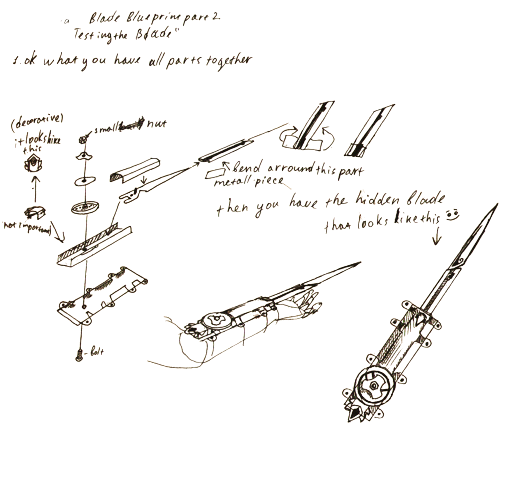 a Blade Blueprint part 2
Testing the Blade"
1. ok what you have all parts together
(decorative)
it looks like
this
small nut
not important
Bend arround this part
metall piece
then you have the hidden Blade
that looks like this
Bolt